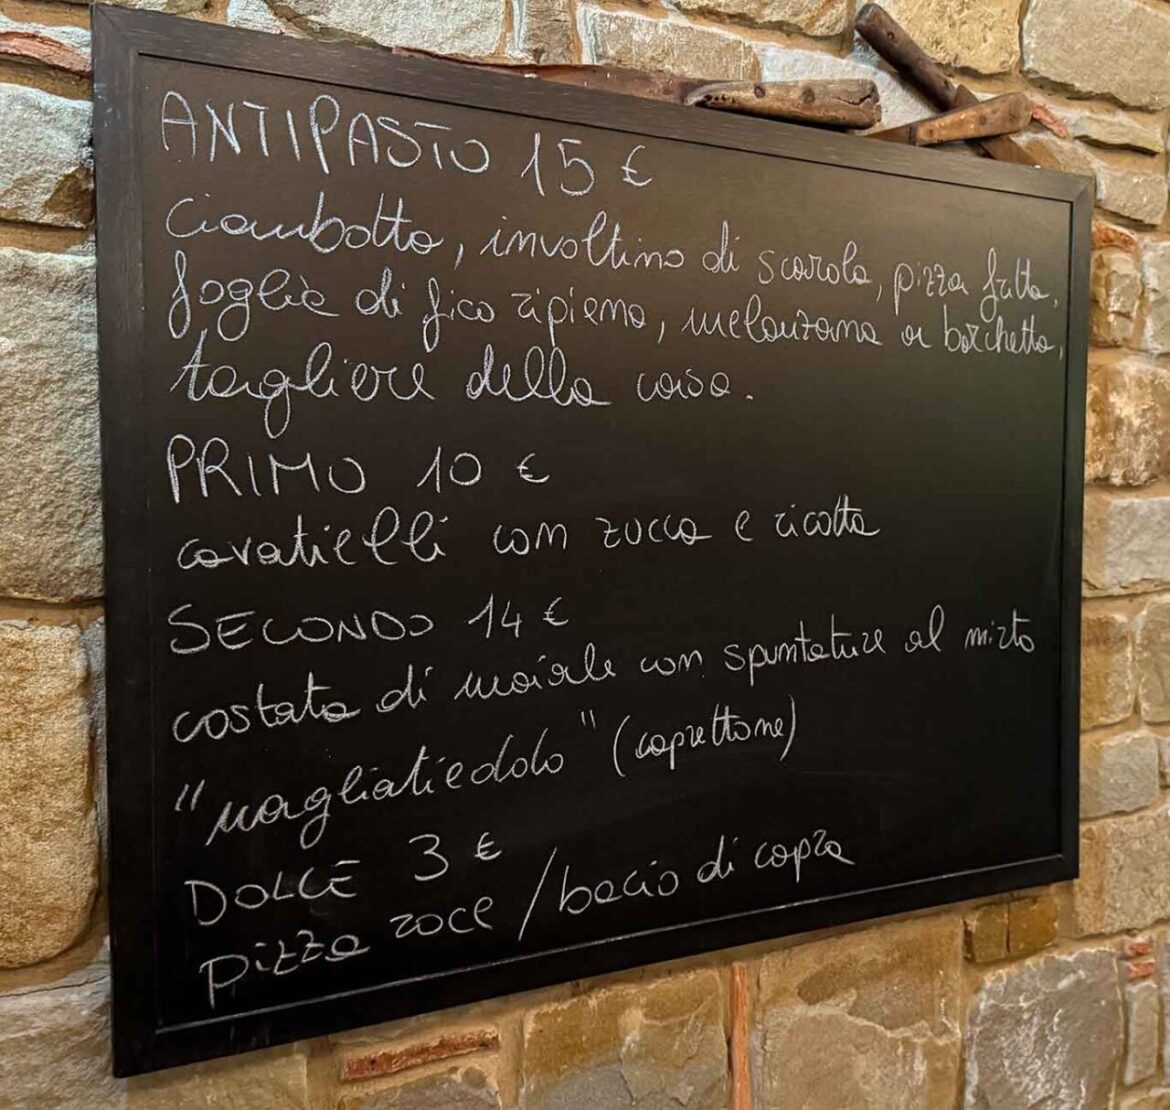 ANTIPASTO 15 €
ciambotta, involtino di scarola, pizza fritta,
foglia di fico ripiena, melanzana a barchetta,
tagliere della casa.
PRIMO 10 €
cavatielli con zucca e ricotta
SECONDO 14 €
costata di maiale con spuntature al mirto
"magliatiedolo" (caprettone)
DOLCE 3 €
pizza roce / bacio di capra